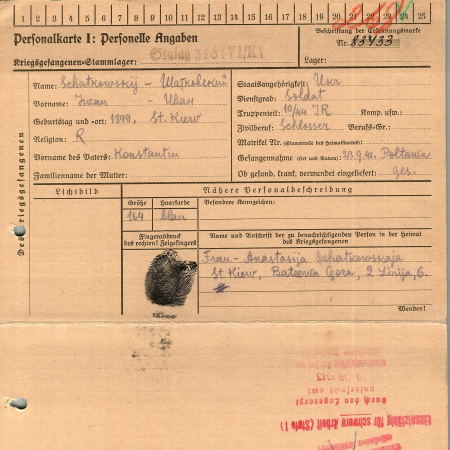 1 2 3 4 5 6 7 8 9 10 11 12 13 14 15 16 17 18 19 20 21 22 23 24 25
Personalkarte I: Personelle Angaben
Kriegsgefangenen-Stammlager: Stalag 326 (VI/K)
Beschriftung der Erkennungsmarke
Nr. 83433
Lager:
Des Kriegsgefangenen
Name: Schatkowskij - Шатковский
Vorname: Iwan - Иван
Geburtstag und -ort: 1899, St. Kiew
Religion: R
Vorname des Vaters: Konstantin
Familienname der Mutter:
Staatsangehörigkeit: Ukr
Dienstgrad: Soldat
Truppenteil: 10/44 IR Komp. usw.:
Zivilberuf: Schlosser Berufs-Gr.:
Matrikel Nr. (Stammrolle des Heimatstaates):
Gefangennahme (Ort und Datum): 23.9.41. Poltawa
Ob gesund, krank, verwundet eingeliefert: ges.
Lichtbild
Nähere Personalbeschreibung
Größe Haarfarbe
164 blau
Besondere Kennzeichen:
Fingerabdruck
des rechten! Zeigefingers!
Name und Anschrift der zu benachrichtigenden Person in der Heimat
des Kriegsgefangenen
Frau - Anastasija Schatkowskaja
St. Kiew, Bateewa Gora, 2 Linija, 6.
Wenden!
Durch den Lagerarzt
untersucht am:
Einsatzfähig für schwere Arbeit (Stufe 1)